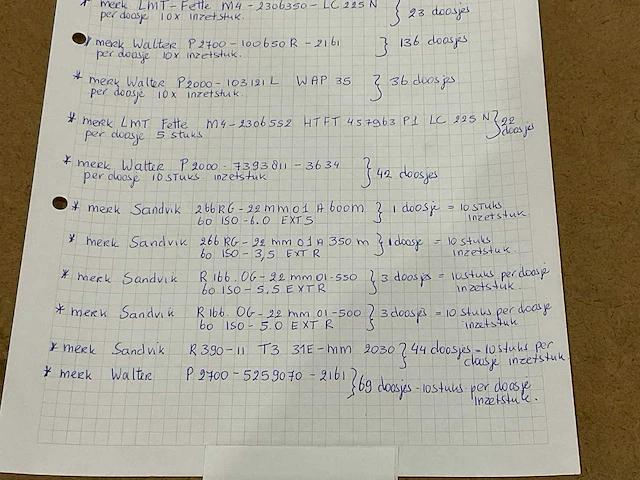 * merk LMT-Fette M4-2306350-LC 225 N } 23 doosjes
per doosje 10x inzetstuk.
* merk Walter P2700-100650 R-2161 } 136 doosjes
per doosje 10x inzetstuk.
* merk Walter P2000-103121 L WAP 35 } 36 doosjes
per doosje 10x inzetstuk.
* merk LMT Fette M4-2306552 HTFT 457963 P1 LC 225 N } 22 doosjes
per doosje 5 stuks
* merk Walter P2000-7393811-3634 } 42 doosjes
per doosje 10 stuks inzetstuk
* merk Sandvik 266 RG-22 mm 01 A 600m } 1 doosje = 10 stuks
60 ISO-6.0 EXT S inzetstuk.
* merk Sandvik 266 RG-22 mm 01 A 350 m } 1 doosje = 10 stuks
60 ISO-3,5 EXT R inzetstuk.
* merk Sandvik R166.OG-22 mm 01-550 } 3 doosjes = 10 stuks per doosje
60 ISO-5.5 EXT R inzetstuk.
* merk Sandvik R166.OG-22 mm 01-500 } 3 doosjes = 10 stuks per doosje
60 ISO-5.0 EXT R inzetstuk.
* merk Sandvik R390-11 T3 31E-mm 2030 } 44 doosjes = 10 stuks per
doosje inzetstuk.
* merk Walter P2700-5259070-2161 } 69 doosjes - 10 stuks per doosje
inzetstuk.